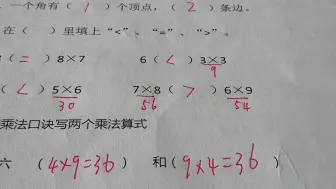 一个角有( 1 )个顶点,( 2 )条边。
在( )里填上“<”、“=”、“>”。
( = )8×7 6( < )3×3
9
( < )5×6 7×8( > )6×9
30 56 54
乘法口诀写两个乘法算式
六 ( 4×9=36 ) 和( 9×4=36 )